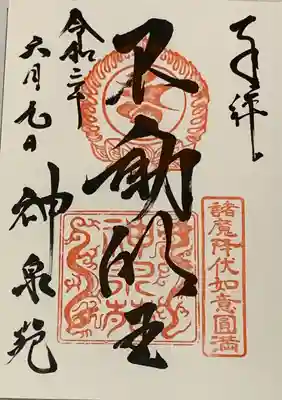 奉拝
諸魔降伏如意圓満
不動明王
神泉苑
令和二年
六月九日
神泉苑